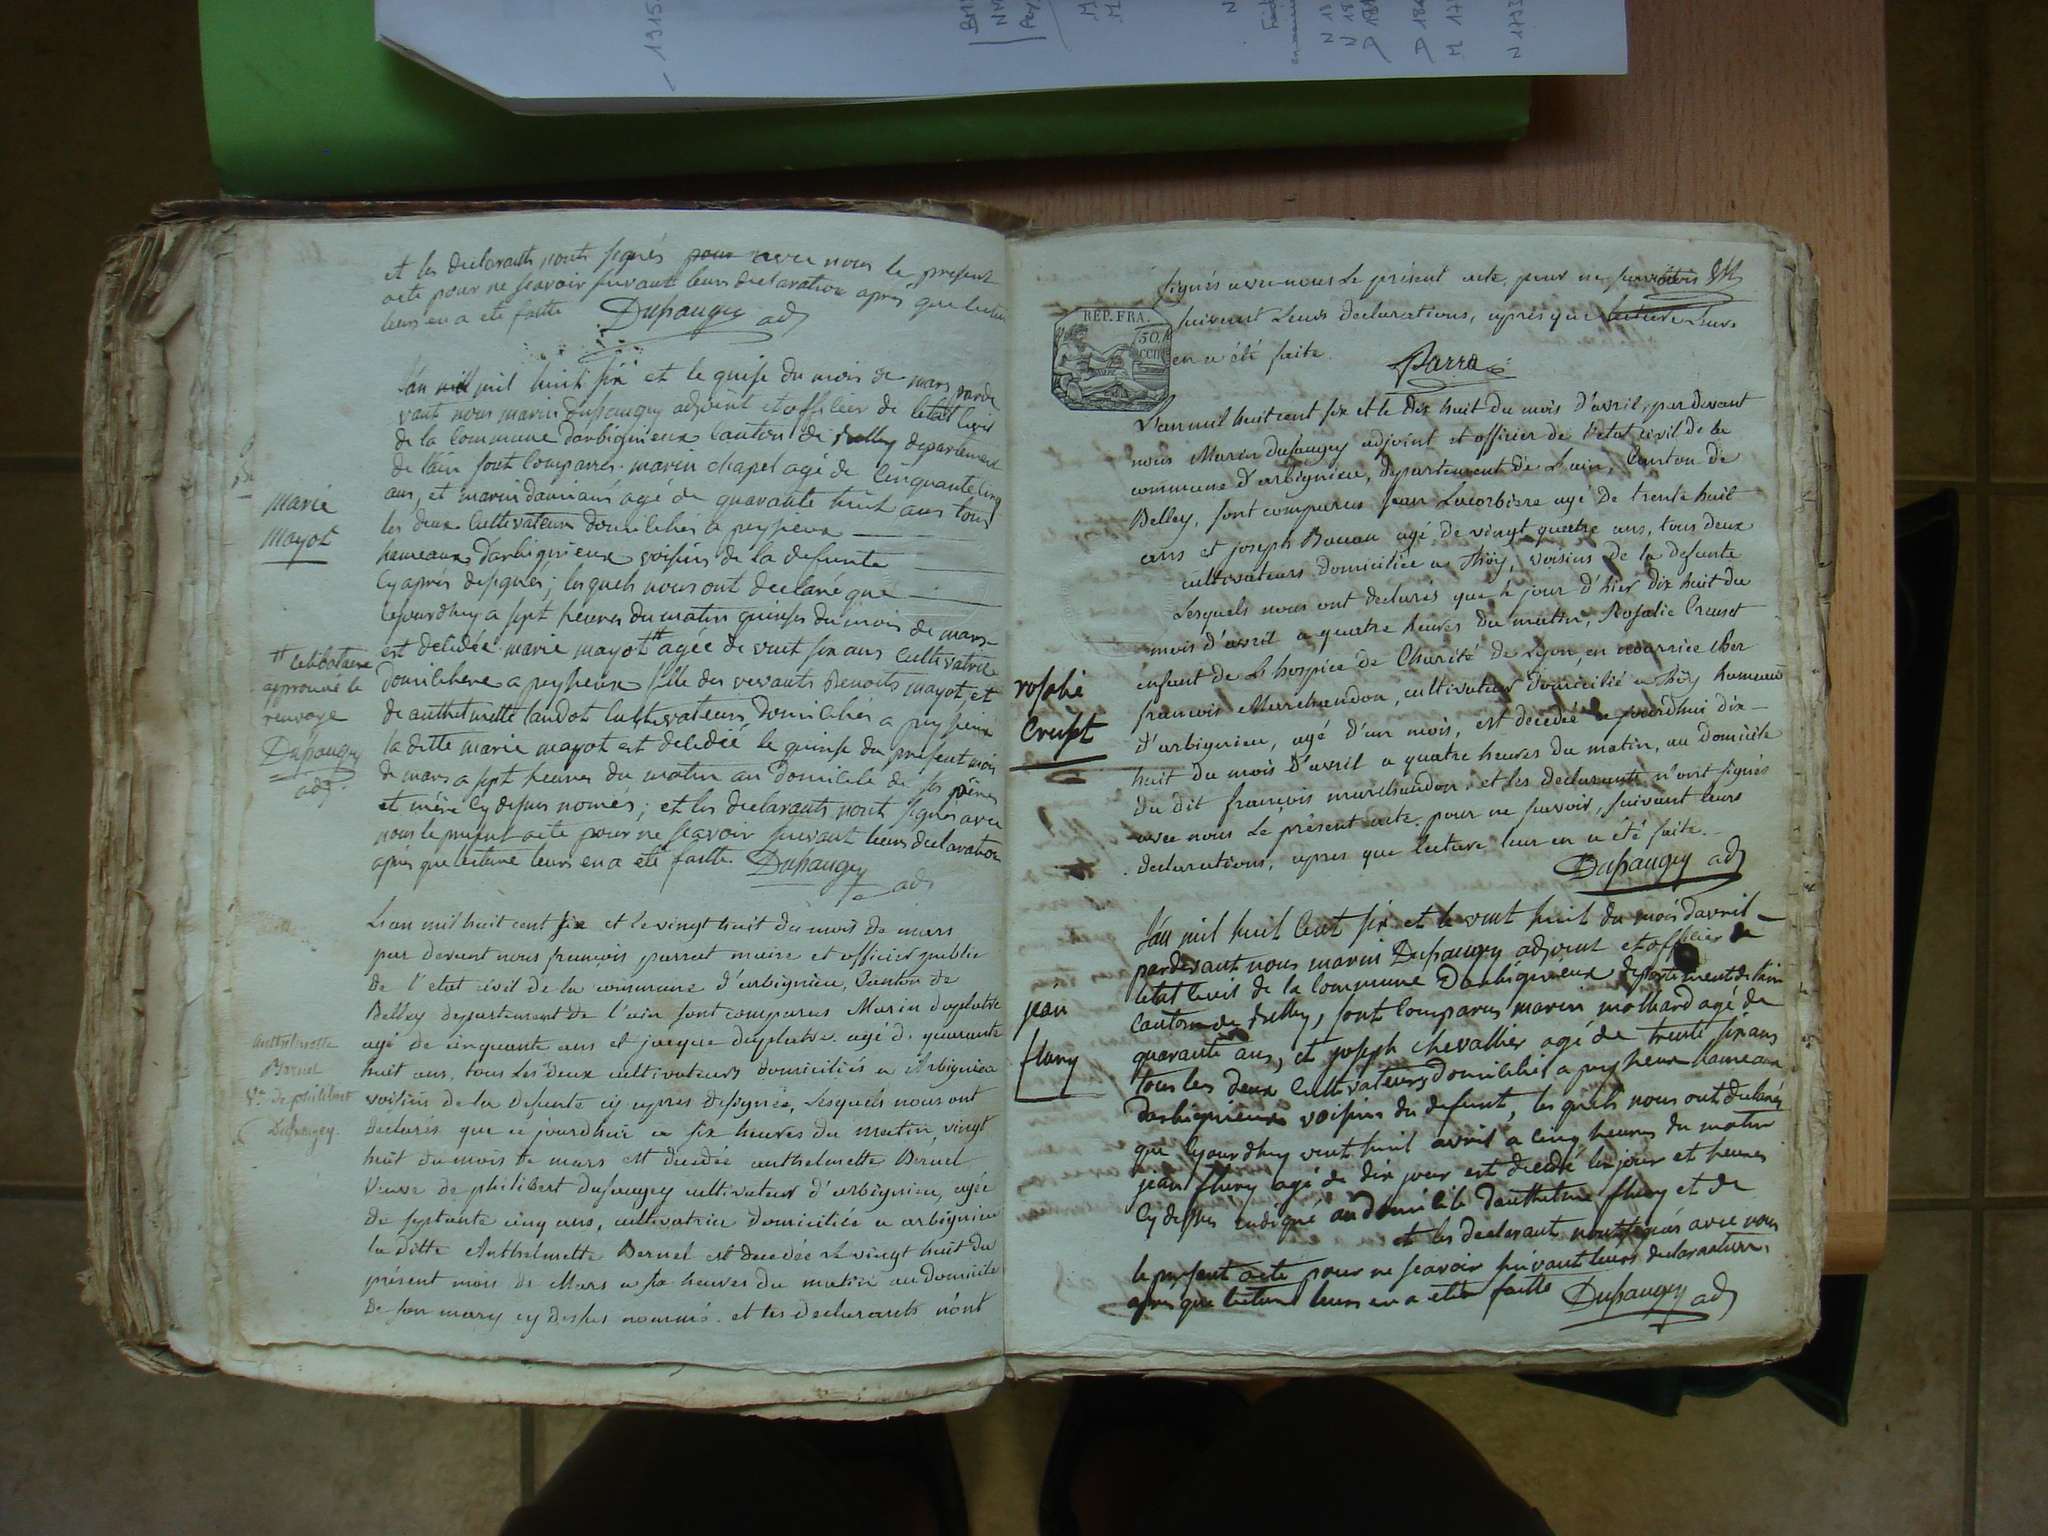 - 1915
et les declarants nonts signés pour avec nous le present
acte pour ne scavoir suivant leurs declaration aprés que lecture
leurs en a eté faitte Dusaugey adj
marie
mayot
L'an mil huit six et le quise du mois de mars parde
vant nous marin dusaugey adjoint et officier de letat civil
de la Commune darbignieux Canton de belley departement
de lain sont Comparrus marin chapel agé de Cinquante Cinq
ans, et marin damians agé de quarante huit ans tous
les deux Cultivateurs domiciliés a peysieux
hameaux darbignieux voisins de la defunte
Cy aprés designés; lesquels nous ont declaré que
cejourdhuy a sept heures du matin quinse du mois de mars
est decedée marie mayot # agée de vint six ans Cultivatrice
# celibataire
approuvé le
renvoye
Dusaugey
adj.
domiciliere a peysieux fille des vivants Benoits mayot, et
de anthelmette landot Cultivateurs domiciliés a peysieux
la ditte marie mayot est decedéé le quinse du present mois
de mars a sept heures du matin au domicile de ses péres
et mére Cy desus només; et les declarants nont signés avec
nous le present acte pour ne scavoir suivant leurs declaration
aprés que lecture leurs en a eté faitte. Dusaugey
adj
Anthelmette
Bernel
Ve. de philibert
Dusaugey.
L'an mil huit cent six et le vingt huit du mois de mars
par devant nous francois parrat maire et officier public
de l'etat civil de la commune d'arbignieu, Canton de
Belley departement de l'ain sont comparus Marin duplatre
agé de cinquante ans et jacque duplatre agé de quarante
huit ans, tous les deux cultivateurs domiciliés a Arbignieu
voisins de la defunte cy apres designée, lesquels nous ont
declarés que ce jourdhui a six heures du matin, vingt
huit du mois de mars est decedée anthelmette Bernel
veuve de philibert dusaugey cultivateur d'arbignieu, agée
de septante cinq ans, cultivatrice domiciliée a arbignieu
la ditte Anthelmette Bernel est decedée le vingt huit du
présent mois de Mars a six heures du matin au domicile
de son mary cy desus nommé. et les declarants n'ont
signés avec nous Le présent acte, pour ne
suivant Leurs declarations, apres que lecture Leurs
en a été faite. Parra
REP. FRA.
50.
CCII
L'an mil huit cent six et le dix huit du mois d'avril, par devant
nous Marin dusaugey adjoint et officier de l'etat civil de la
commune d'arbignieu, departement de L'ain, Canton de
Belley, sont comparus jean Lacorbiere agé de trente huit
ans et joseph Bavau agé de vingt quatre ans, tous deux
cultivateurs domiciliés a Thoy, voisins de la defunte
Lesquels nous ont declarés que le jour d'hier dix huit du
mois d'avril a quatre heures du matin, Rosalie Creuset
rosalie
Creuset
enfant de L'hospice de Charité de Lyon, en nourrice chez
francois Marchandon, cultivateur domicilié a Thoy hameau
d'arbignieu, agé d'un mois, est décedée ce jourdhui dix
huit du mois d'avril a quatre heures du matin, au domicile
du dit françois marchandon. et les declarants n'ont signés
avec nous Le présent acte pour ne savoir, suivant leurs
declarations, apres que lecture leur en a été faite.
Dusaugey adj
jean
flury
L'an mil huit Cent six et le vint huit du mois davril
pardevant nous marin Dusaugey adjoint et officier de
letat Civil de la Commune Darbignieux departement de lain
Canton de belley, sont Comparus marin mollard agé de
quarante ans, et joseph chevallier agé de trente six ans
tous les deux Cultivateurs domiciliés a peysieux hameau
darbignieux voisins du defunt, les quels nous ont declarés
que cejourdhuy vint huit avril a Cinq heures du matin
jean flury agé de dix jour est decedé les jour et heures
Cy dessus endiqué au domicile danthelme flury et de
et les declarant nont signés avec nous
le present acte pour ne scavoir suivant leurs declaration,
aprés que lecture leurs en a etée faitte Dusaugey adj